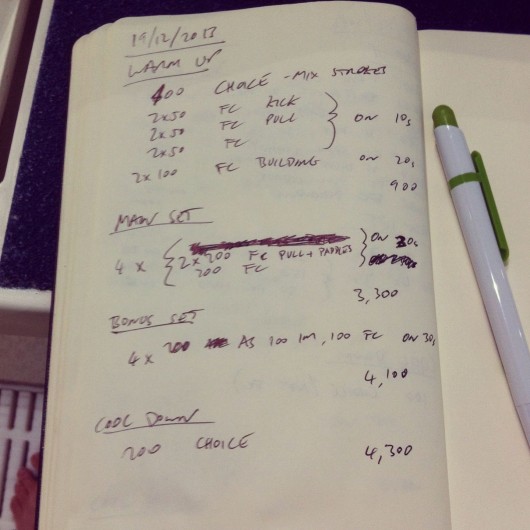 19/12/2013
WARM UP
400 CHOICE - MIX STROKES
2x50 FC KICK
2x50 FC PULL
2x50 FC
ON 10s
2x100 FC BUILDING ON 20s
900
MAIN SET
4 x
2 x 200 FC PULL + PADDLES
200 FC
ON 30s
3,300
BONUS SET
4 x 200 AS 100 IM, 100 FC ON 30s
4,100
COOL DOWN
200 CHOICE
4,300